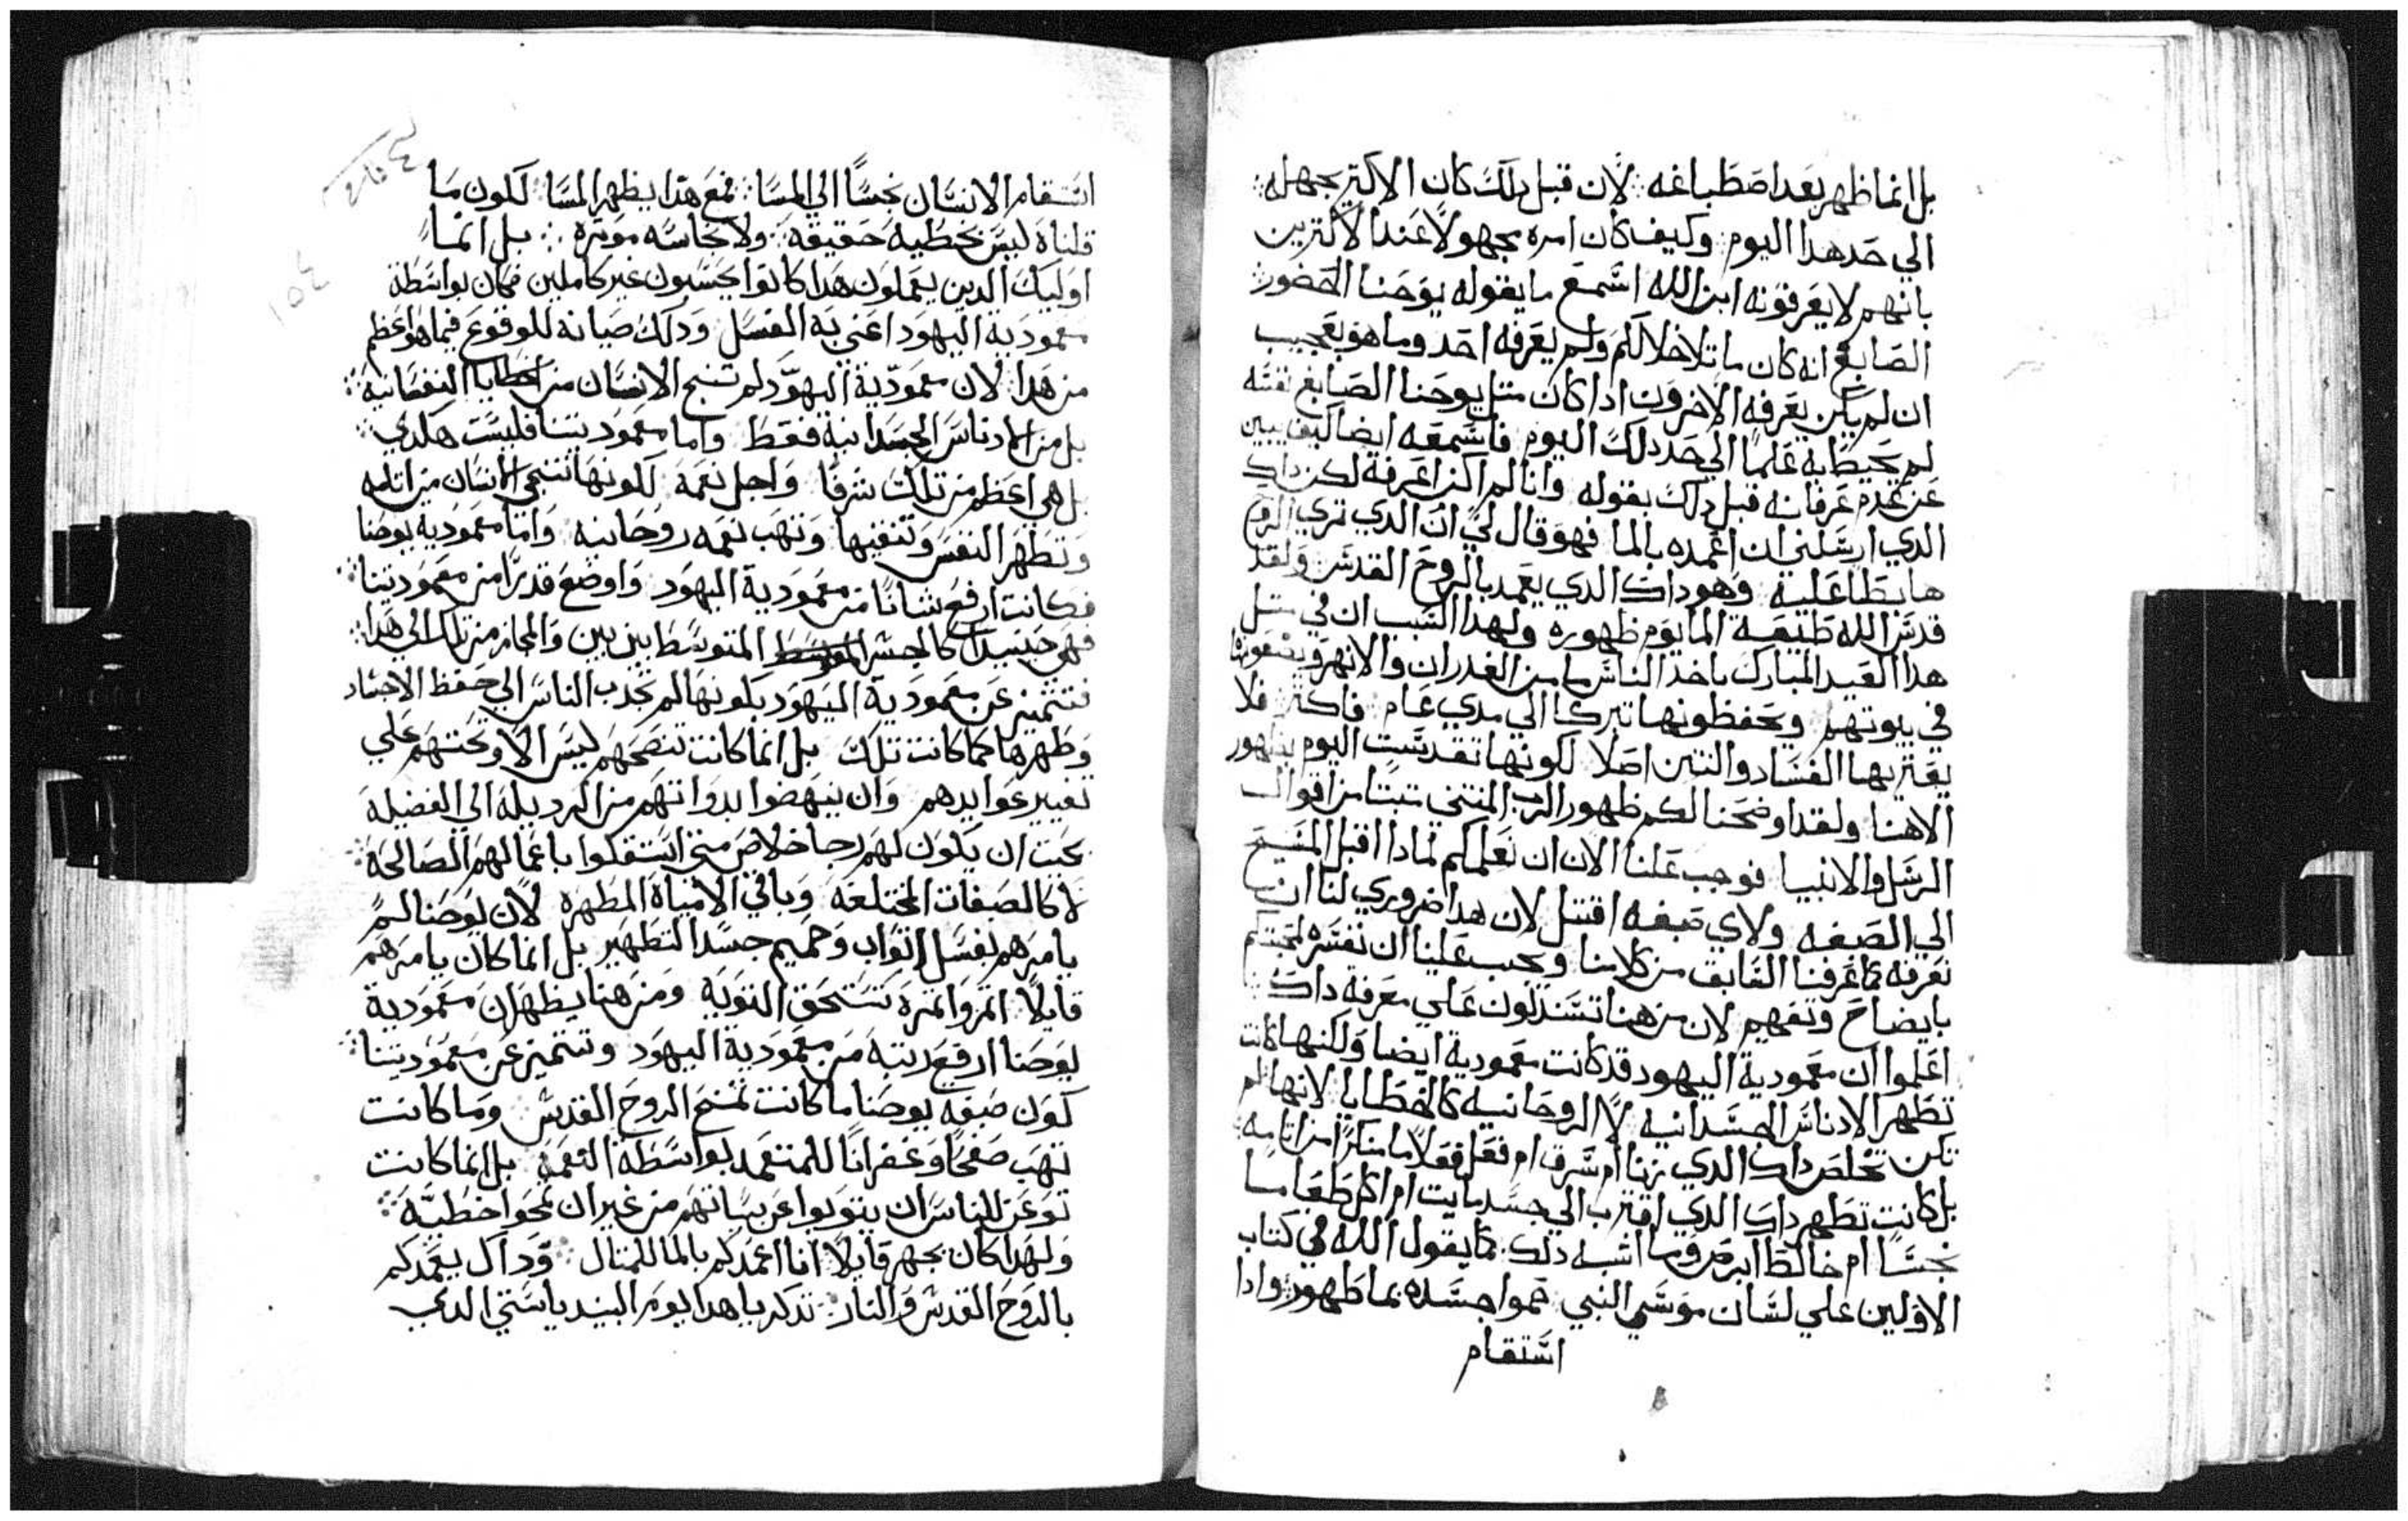 بل انما ظهر بعد اصطباغه لان قبل دلك كان الاكتر يجهله
الي حد هدا اليوم وكيف كان امره مجهولا عند الاكترين
بانهم لا يعرفونه ابن الله اسمع ما يقوله يوحنا الحضور
الصابغ انه كان ماتلا خلالكم ولم يعرفه احد وما هو بعجيب
ان لم يكن يعرفه الاخرون ادا كان متل يوحنا الصابغ نفسه
لم يحيط به علما الي حد دلك اليوم فاسمعه ايضا كيف يبين
عن عدم عرفانه قبل دلك بقوله وانا لم اكن اعرفه لكن داك
الدي ارسلني ان اعمده بالما فهو قال لي ان الدي تري الروح
هابطا عليه وهو داك الدي يعمد بالروح القدس ولقد
قدس الله طبيعة الما يوم ظهوره ولهدا السبب ان في متل
هدا العيد المبارك ياخد الناس ما من الغدران والانهر ويضعونها
في بيوتهم ويحفظونها تبركا الي مدي عام فاكتر فلا
يعتريها الفساد والنتن اصلا لكونها تقدست اليوم بظهور
الاهنا ولقد اوضحنا لكم ظهور الرب المنتني تبتا من اقوال
الرسل والانبيا فوجب علنا الان ان نعلمكم لمادا اقبل المسيح
الي الصبغه ولاي صبغه اقتبل لان هدا ضروري لنا ان
نعرفه كما عرفنا السابق من كلامنا ويجب علينا ان نفسره لمحبتكم
بايضاح وتفهيم لان من هنا تستدلون علي معرفة داك
اعلموا ان معمودية اليهود قد كانت معمودية ايضا ولكنها كانت
تطهر الادناس الجسدانيه لا الروحانيه كالخطايا لانها لم
تكن تخلص داك الدي زنا ام سرق ام فعل فعلا ما منكرا من اتامه
بل كانت تطهر داك الدي اقترب الي جسد مايت ام اكل طعاما
نجسا ام خالط ابرص وما اشبه دلك كما يقول الله في كتاب
الاولين علي لسان موسي النبي حموا جسده بما طهور وادا
استقام
استقام الانسان نجسا الي المسا فمع هدا يظهر المسا لكون ما
قلناه ليس بخطيه حقيقه ولا نجاسه موتره بل انما
اوليك الدين يعملون هدا كانوا يحسبون غير كاملين فكان بواسطة
معمودية اليهود اعني به الغسل ودلك صيانه للوقوع فيما هو اعظم
من هدا لان معمودية اليهود لم تنج الانسان من الخطايا النفسانيه
بل من الادناس الجسدانيه فقط واما معموديتنا فليست هكدي
بل هي اعظم من تلك شرفا واجل نعمه لكونها تنجي الانسان من اتامه
وتطهر النفس وتنقيها وتهب نعمه روحانيه واما معمودية يوحنا
فكانت ارفع شانا من معمودية اليهود واوضع قدرا من معموديتنا
فهي حينيد كالجسر المتوسط بين بين والمجاز من تلك الي هدا
فتتميز عن معمودية اليهود بكونها لم تجدب الناس الي حفظ الاجساد
وطهرها كما كانت تلك بل انما كانت تنصحهم ليس الا وتحتهم علي
تغيير عوايدهم وان ينهضوا بدواتهم من الرديله الي الفضيله
بحيت ان يكون لهم رجا خلاص متي استعلوا باعمالهم الصالحه
لا كالصبغات المختلفه وباقي الامياه المطهره لان يوحنا لم
يامرهم بغسل اتواب وحميم جسد التطهير بل انما كان يامرهم
قايلا اتمروا تمره تستحق التوبه ومن هنا يظهر ان معمودية
يوحنا ارفع رتبه من معمودية اليهود وتتميز عن معموديتنا
كون صبغه يوحنا ما كانت تمنح الروح القدس وما كانت
تهب صفحا وغفرانا للمتعمد بواسطة النعمه بل انما كانت
توعز للناس ان يتوبوا عن سياتهم من غير ان تمحوا خطيه
ولهدا كان يجهر قايلا انا اعمدكم بالما للمتال وداك يعمدكم
بالروح القدس والنار تدكر يا هدا يوم البنديايستي الدي